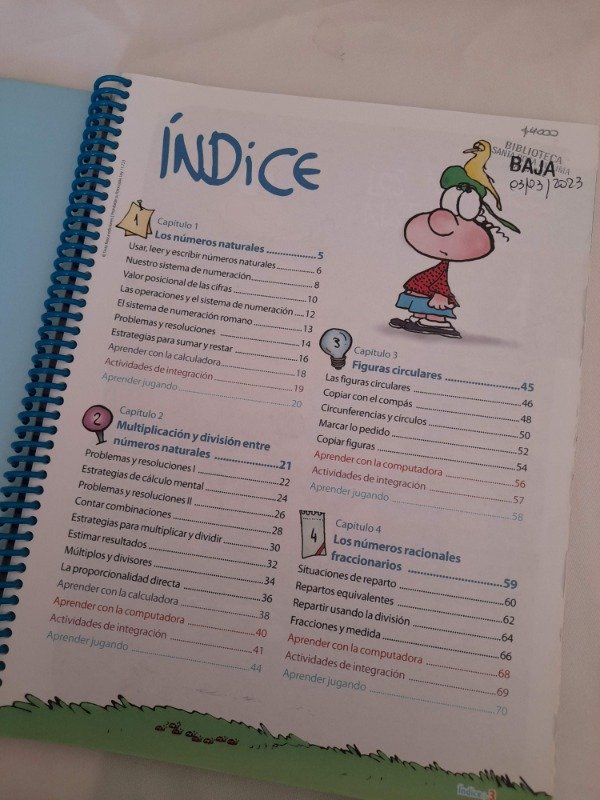 ÍNDICE
14000
BIBLIOTECA
BAJA
03/03/2023
1
Capítulo 1
Los números naturales 5
Usar, leer y escribir números naturales 6
Nuestro sistema de numeración 8
Valor posicional de las cifras 10
Las operaciones y el sistema de numeración 12
El sistema de numeración romano 13
Problemas y resoluciones 14
Estrategias para sumar y restar 16
Aprender con la calculadora 18
Actividades de integración 19
Aprender jugando 20
2
Capítulo 2
Multiplicación y división entre
números naturales 21
Problemas y resoluciones I 22
Estrategias de cálculo mental 24
Problemas y resoluciones II 26
Contar combinaciones 28
Estrategias para multiplicar y dividir 30
Estimar resultados 32
Múltiplos y divisores 34
La proporcionalidad directa 36
Aprender con la calculadora 38
Aprender con la computadora 40
Actividades de integración 41
Aprender jugando 44
3
Capítulo 3
Figuras circulares 45
Las figuras circulares 46
Copiar con el compás 48
Circunferencias y círculos 50
Marcar lo pedido 52
Copiar figuras 54
Aprender con la computadora 56
Actividades de integración 57
Aprender jugando 58
4
Capítulo 4
Los números racionales
fraccionarios 59
Situaciones de reparto 60
Repartos equivalentes 62
Repartir usando la división 64
Fracciones y medida 66
Aprender con la computadora 68
Actividades de integración 69
Aprender jugando 70
Índice 3